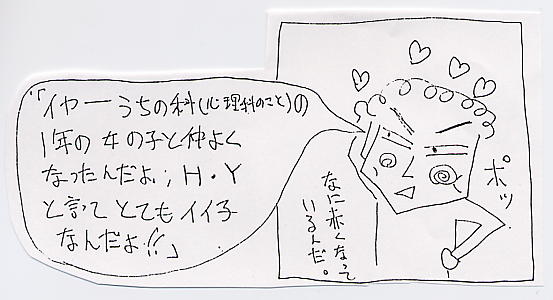 「イヤーうちの科(心理科のこと)の
1年の女の子と仲よく
なったんだよ;H・Y
と言ってとてもイイ子
なんだよ!!」
ポッ
なに赤くなって
いるんだ。